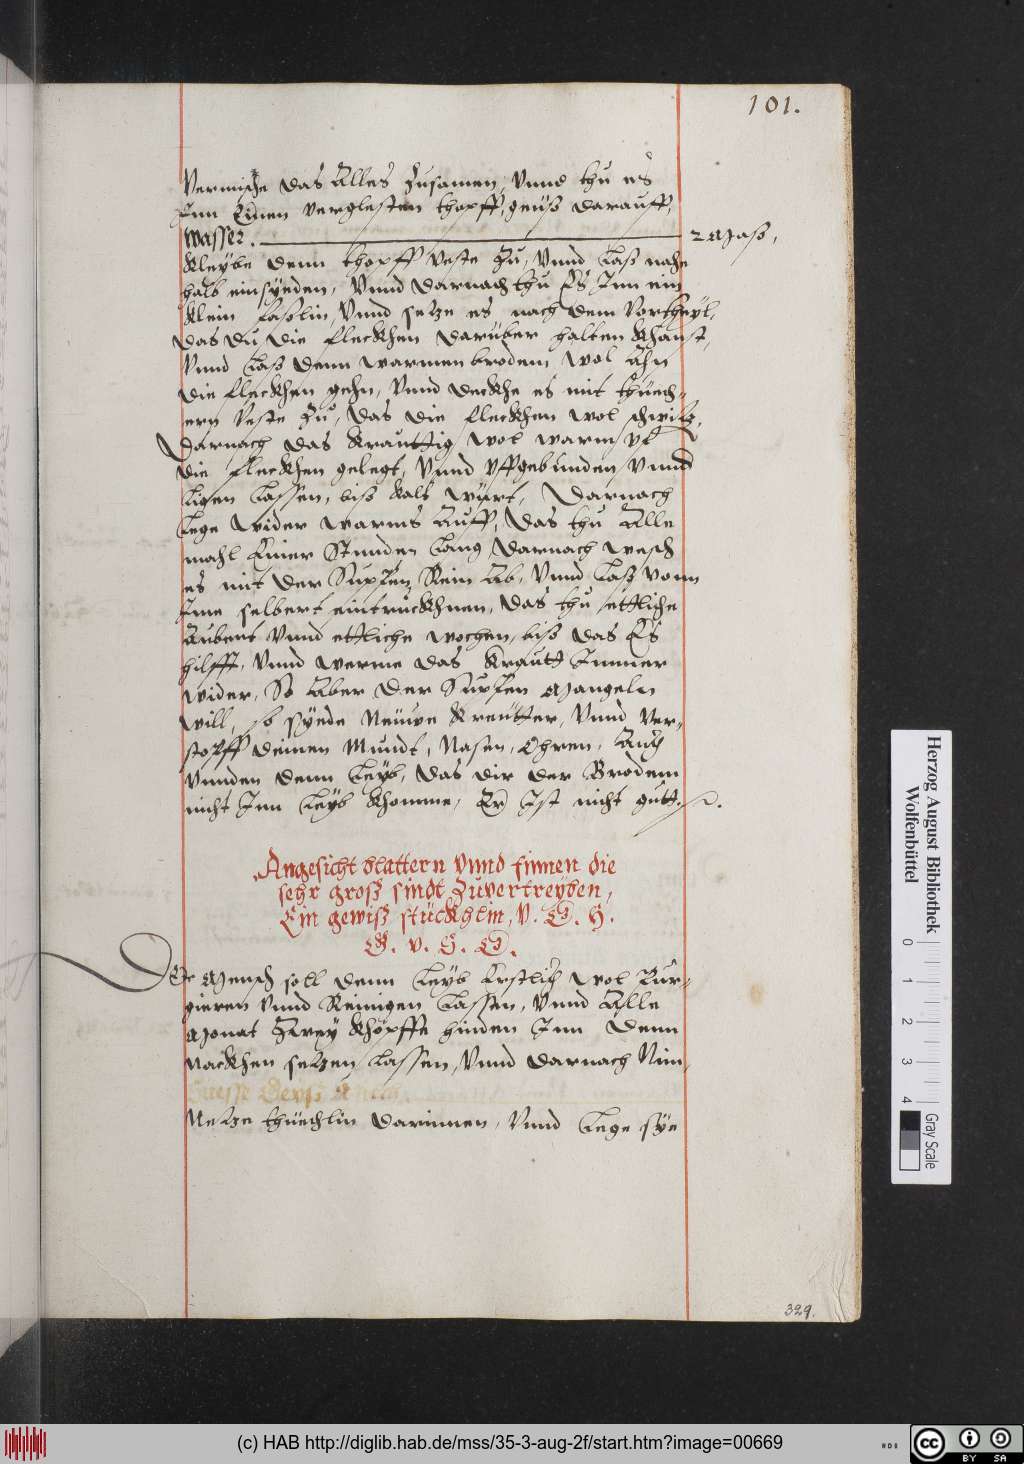 101.
Vermische das Alles zusamen, Vnnd thu es
Inn Einen verglesten thopff, geuß darauff,
Wasser. 2 Maß,
Kleybe denn thopff Veste Zu, Vnnd Laß nahe
halb einsyeden, Vnnd darnach thu Es Inn ein
klein faßlin, Vnnd setze es nach dem Vortheyl,
das du die fleckhen darüber halten khanst,
Vnnd Laß denn warmen brodem, wol Ahn
die fleckhen gehn, Vnnd deckhe es mit thüech-
ern Veste Zu, das die fleckhen wol schwitz,
Darnach das Krauttig wol warm vf
die fleckhen gelegt, Vnnd vffgebunden Vnnd
Ligen Lassen, biß kalt würt, Darnach
Lege wider warms Auff, das thu Alle
mahl Einer Stunden Lang, darnach wesch
es mit der Suppen Rein Ab, Vnnd Laß vonn
Ime selbert eintruckhnen, das thu ettliche
Aubent Vnnd ettliche wochen, biß das Es
hilfft, Vnnd werme das Krautt Immer
wider, So Aber der Suppen Mangeln
will, so syede Neuwe Kreutter, Vnnd Ver-
stopff deinen Mundt, Nasen, Ohren, Auch
Vnnden denn Leyb, das dir der Brodem
nicht Inn Leyb khomme, Er Ist nicht gutt.
Angesicht blattern Vnnd finnen die
sehr groß sindt Zuvertreyben,
Ein gewiß stückhlin, V. G. H.
G. v. H. G.
Der Mensch soll denn Leyb Erstlich wol Pur-
gieren Vnnd Reinigen Lassen, Vnnd Alle
Monat Zwey khöpffe hinden Inn denn
Nackhen setzen Lassen, Vnnd darnach Nim,
Netze thüechlin darinnen, Vnnd Lege sye
329.
Herzog August Bibliothek
Wolfenbüttel
0 1 2 3 4
Gray Scale
(c) HAB http://diglib.hab.de/mss/35-3-aug-2f/start.htm?image=00669
cc BY SA